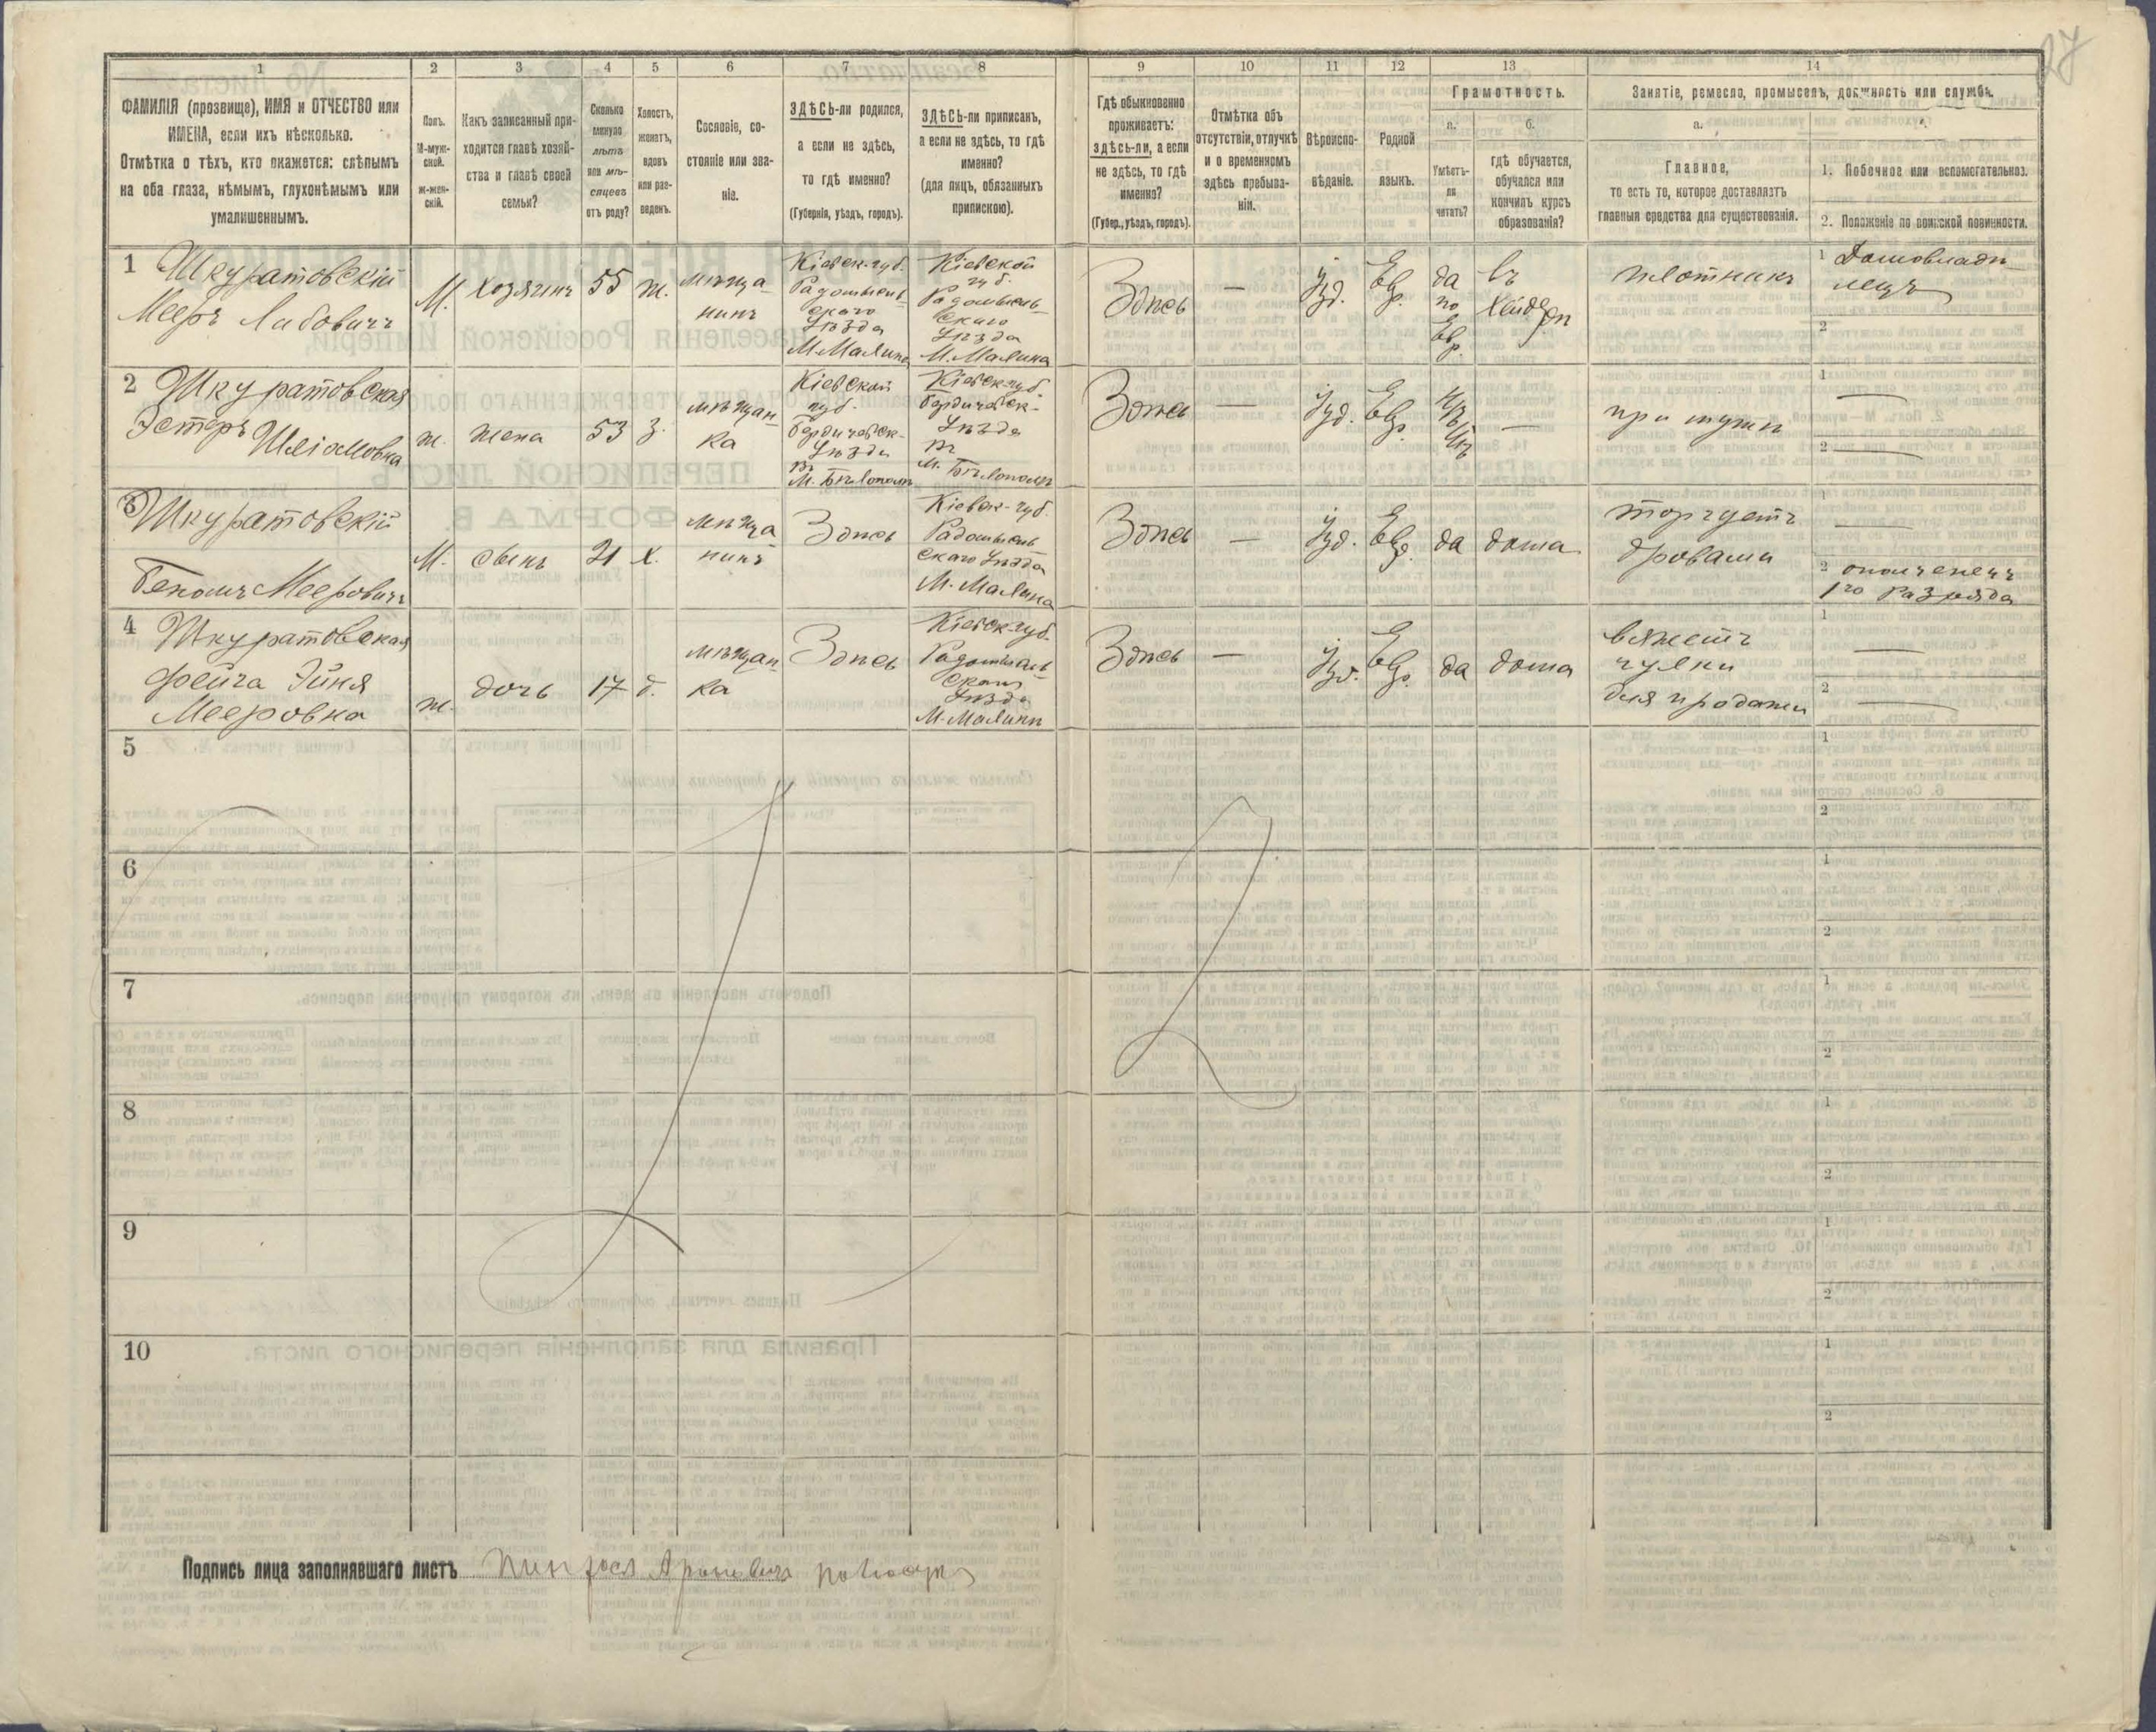 27
1
2
3
4
5
6
7
8
9
10
11
12
13
14
ФАМИЛІЯ (прозвище), ИМЯ и ОТЧЕСТВО или
ИМЕНА, если ихъ нѣсколько.
Отмѣтка о тѣхъ, кто окажется: слѣпымъ
на оба глаза, нѣмымъ, глухонѣмымъ или
умалишеннымъ.
Полъ.
М-муж-
ской.
Ж-жен-
скій.
Какъ записанный при-
ходится главѣ хозяй-
ства и главѣ своей
семьи?
Сколько
минуло
лѣтъ
или мѣ-
сяцевъ
отъ роду?
Холостъ,
женатъ,
вдовъ
или раз-
веденъ.
Сословіе, со-
стояніе или зва-
ніе.
ЗДѢСЬ-ли родился,
а если не здѣсь,
то гдѣ именно?
(Губернія, уѣздъ, городъ).
ЗДѢСЬ-ли приписанъ,
а если не здѣсь, то гдѣ
именно?
(для лицъ, обязанныхъ
припискою).
Гдѣ обыкновенно
проживаетъ:
здѣсь-ли, а если
не здѣсь, то гдѣ
именно?
(Губер., уѣздъ, городъ).
Отмѣтка объ
отсутствіи, отлучкѣ
и о временномъ
здѣсь пребыва-
ніи.
Вѣроиспо-
вѣданіе.
Родной
языкъ.
Грамотность.
а.
Умѣетъ-
ли
читать?
б.
гдѣ обучается,
обучался или
кончилъ курсъ
образованія?
Занятіе, ремесло, промыселъ, должность или служба.
а.
Главное,
то есть то, которое доставляетъ
главныя средства для существованія.
1. Побочное или вспомогательное.
2. Положеніе по воинской повинности.
1 Шкуратовскій
Мееръ Лабовичъ
М.
Хозяинъ
55
ж.
мѣща-
нинъ
Кіевск. губ.
Радомысль-
скаго
Уѣзда
М. Малина
Кіевской
губ.
Радомысль-
скаго
Уѣзда
М. Малина
Здѣсь
—
Іуд.
Евр.
да
по
Евр.
въ
Хайдерѣ
плотникъ
1 Домовладѣ-
лецъ
2
2 Шкуратовская
Эстеръ Шліомовна
ж.
жена
53
з.
мѣщан-
ка
Кіевской
губ.
Бердичевск-
Уѣзда
М. Бѣлополь
Кіевск. губ.
Бердичевск-
Уѣзда
М. Бѣлополь
Здѣсь
—
Іуд.
Евр.
—
при мужѣ
1 —
2 —
3 Шкуратовскій
Бенюмъ Мееровичъ
М.
сынъ
21
х.
мѣща
нинъ
Здѣсь
Кіевск. губ.
Радомысль
скаго Уѣзда
М. Малина
Здѣсь
—
Іуд.
Евр.
да
дома
торгуетъ
дровами
1 —
2 ополченецъ
1го разряда
4 Шкуратовская
Фейга Эйня
Мееровна
ж.
дочь
17
д.
мѣщан
ка
Здѣсь
Кіевск. губ.
Радомысль
скаго
Уѣзда
М. Малина
Здѣсь
—
Іуд.
Евр.
да
дома
вяжетъ
чулки
для продажи
1 —
2 —
5
1
2
6
1
2
7
1
2
8
1
2
9
1
2
10
1
2
Подпись лица заполнявшаго листъ